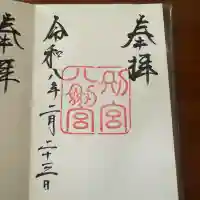 奉拝
別宮
八幡宮
令和八年二月二十三日
奉拝